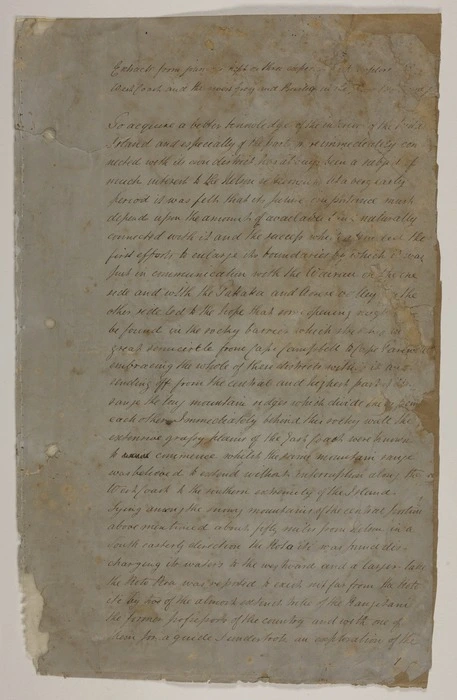 Extracts from journal kept on three
East Coast and the rivers Grey and
To acquire a better knowledge of the interior of the
Island and especially of the part immediately con
nected with its own district has always been a subject of
much interest to the Nelson At a very early
period it was felt that its future importance must
depend upon the amount of available land naturally
connected with it and the success which the
first efforts to enlarge its boundaries by which it was
put in communication with the Wairau on the one
side and with the Takaka and on the
other side led to the hope that more openings might
be found in the rocky barrier which in a
great semicircle from Cape Campbell to Cape Farewell
embracing the whole of these districts within its arms
sending off from the central and highest part of
range the long mountain ridges which divide them from
each other. Immediately behind this rocky wall the
extensive grassy plains of the East Coast were known
to commence whilst the snowy mountain range
was believed to extend without interruption along the
West Coast to the southern extremity of the Island.
Lying among the snowy mountains of the central portion
above mentioned about fifty miles from Nelson in a
south easterly direction the Rotoiti was found dis
charging its waters to the westward and a larger lake
the Roto Roa was reported to exist not far from the Roto
iti by two of the almost extinct tribe of the Rangitani
the former possessors of the country and with one of
them for a guide I undertook an exploration of the